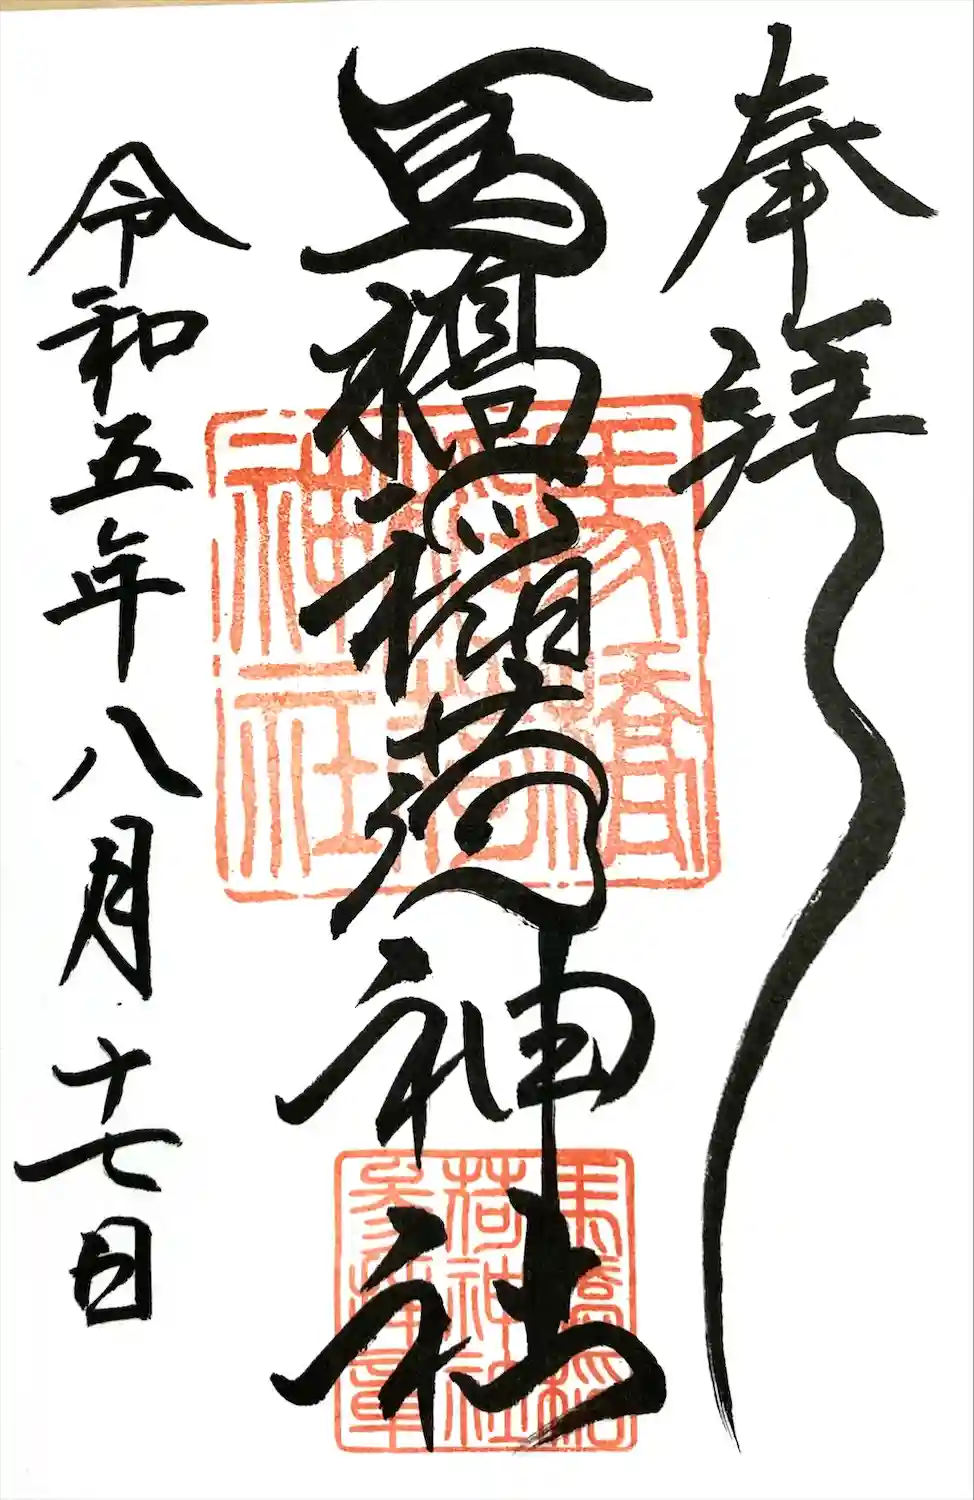 奉拝
馬橋稲荷神社
令和五年八月十七日
馬橋
稲荷
神社
馬橋稲
荷神社
参拝章